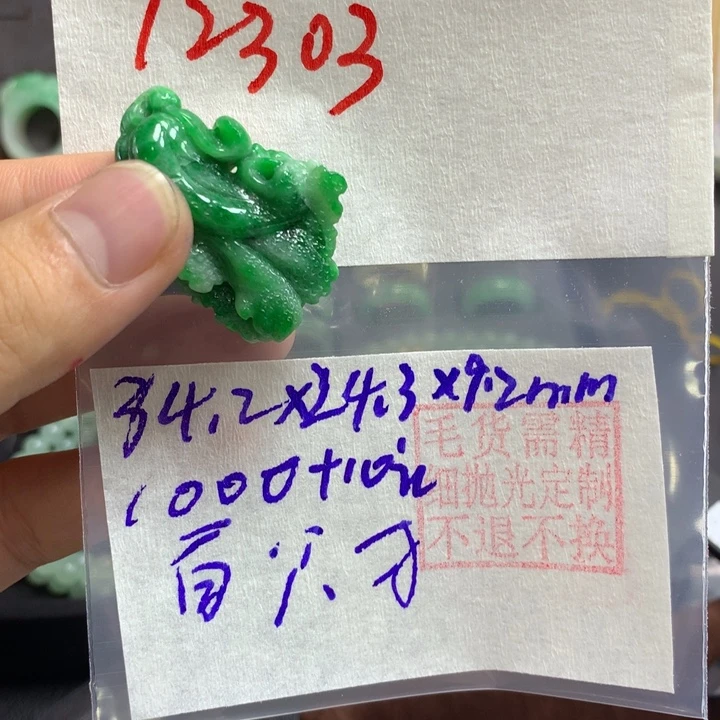 12303
34.2x24.3x9.2mm
1000+10
百
毛货需精
细抛光定制
不退不换